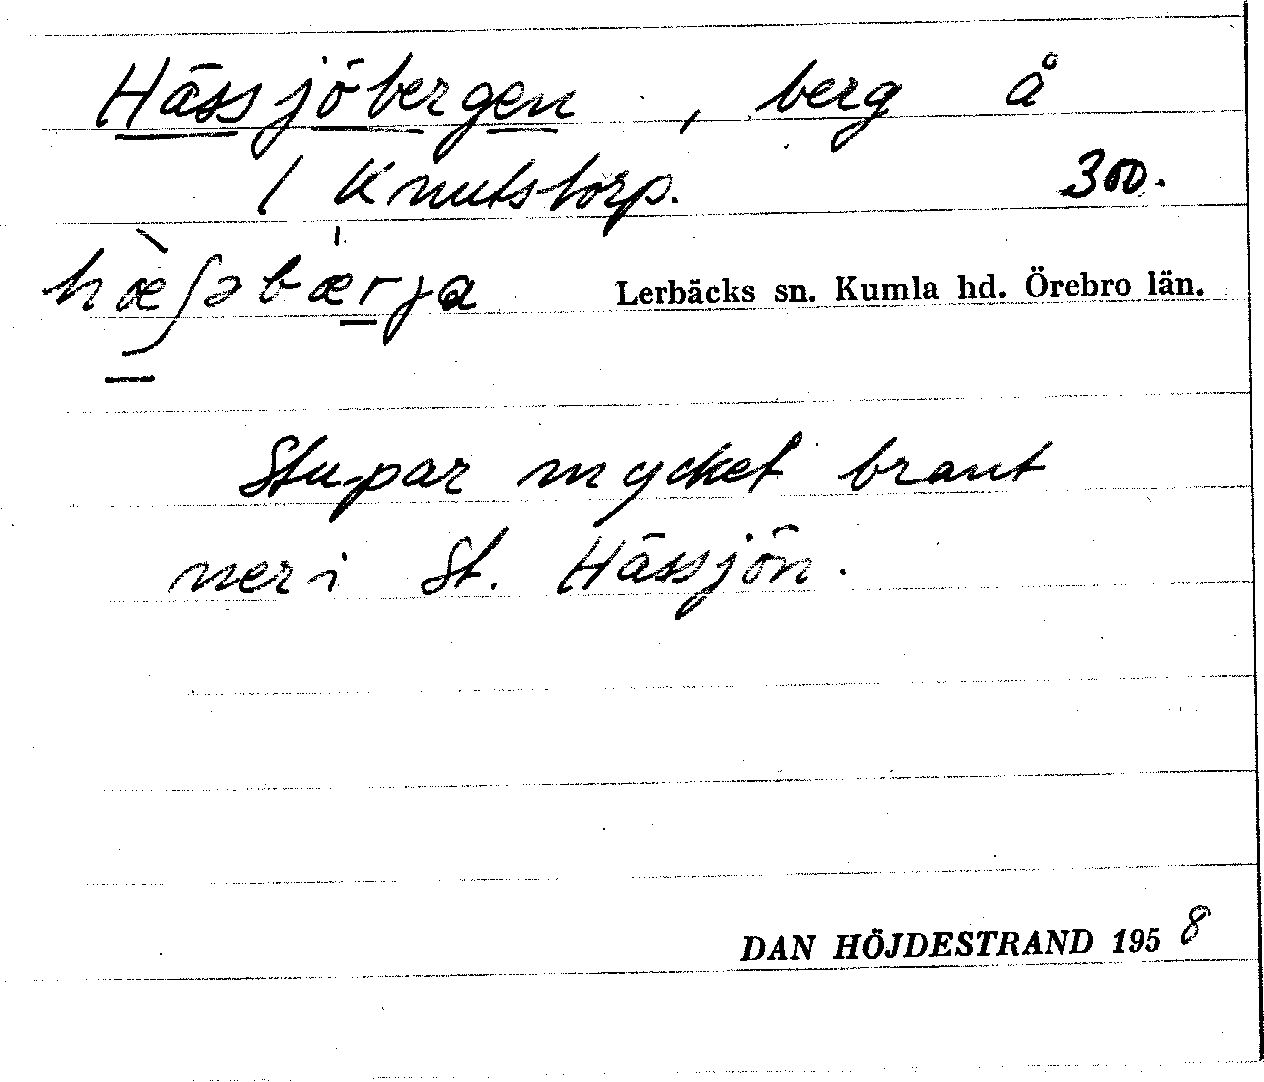 Hässjöbergen, berg å
1 Knutstorp. 300.
hæ̀ʃəbæ̍rja Lerbäcks sn. Kumla hd. Örebro län.
Stupar mycket brant
ner i St. Hässjön.
DAN HÖJDESTRAND 1958